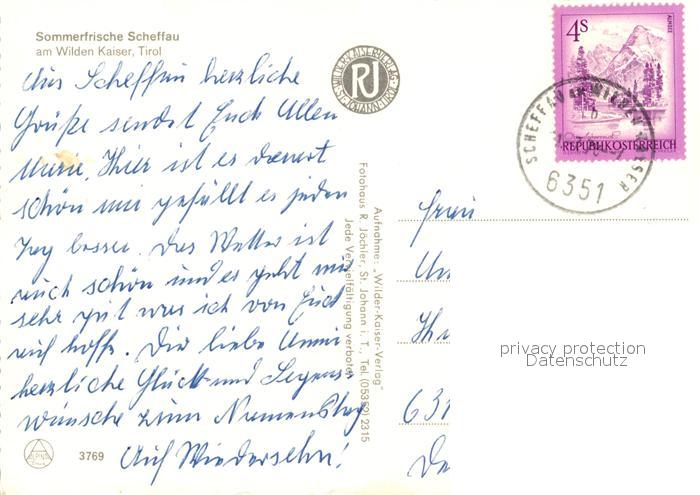 Sommerfrische Scheffau
am Wilden Kaiser, Tirol
Aus Scheffau herzliche
Grüße sendet Euch Allen
Marie. Hier ist es dauert
schön mir gefällt es jeden
Tag besser. Das Wetter ist
auch schön und es geht mir
sehr gut was ich von Euch
auch hoffe. Die liebe
herzliche Glück und Segens
wünsche zum Namenstag
Auf Wiedersehn!
3769
RJ
Aufnahme: „Wilder-Kaiser-Verlag"
Fotohaus R. Jöchler, St. Johann i. T., Tel. (05352) 2315
Jede Vervielfältigung verboten
4S
ALMSEE
REPUBLIK ÖSTERREICH
SCHEFFAU AM WILDEN KAISER
6351
Frau
privacy protection
Datenschutz
631